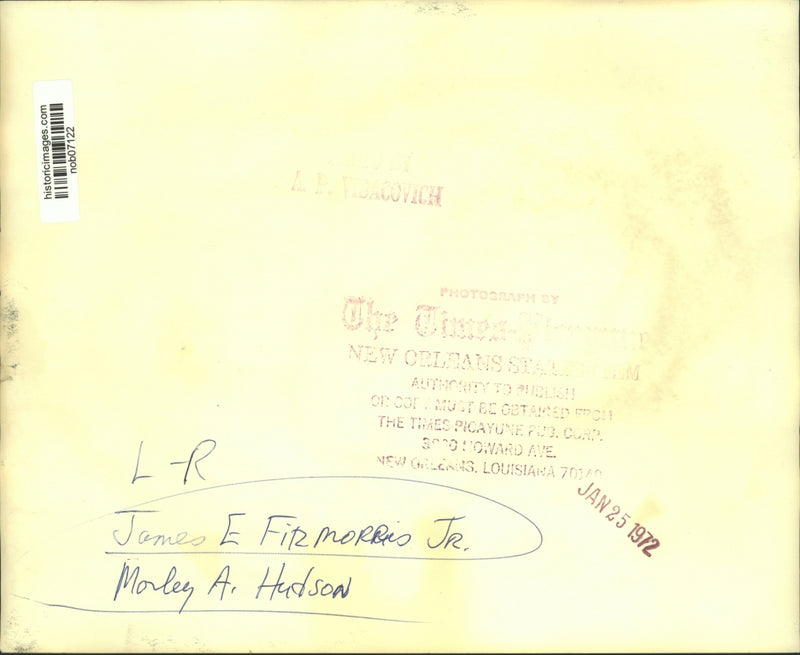 historicimages.com
nob07122
BY
A. P. VIDACOVICH
PHOTOGRAPH BY
The Times-Picayune
NEW ORLEANS STATES-ITEM
AUTHORITY TO PUBLISH
OR COPY MUST BE OBTAINED FROM
THE TIMES PICAYUNE PUB. CORP.
3800 HOWARD AVE.
NEW ORLEANS, LOUISIANA 70140
JAN 25 1972
L-R
James E Fitzmorris Jr.
Morley A. Hudson